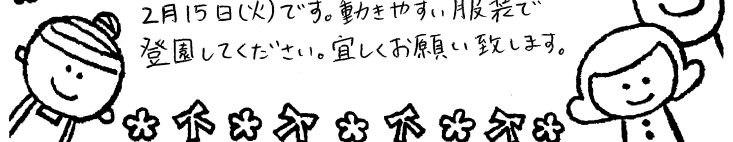 2月15日(火)です。動きやすい服装で
登園してください。宜しくお願い致します。